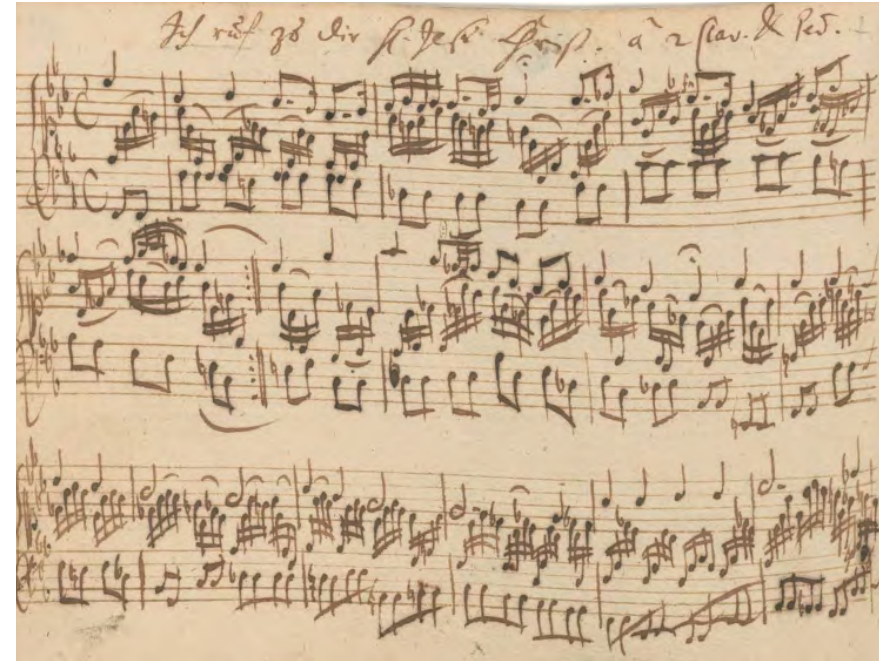 Ich ruf zu dir H. Jesu Christ. â 2 Clav. & Ped.